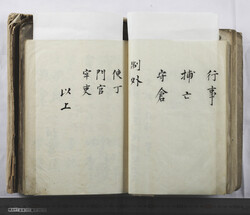 行事
捕亡
守倉
別外
使丁
門官
宰吏
以上